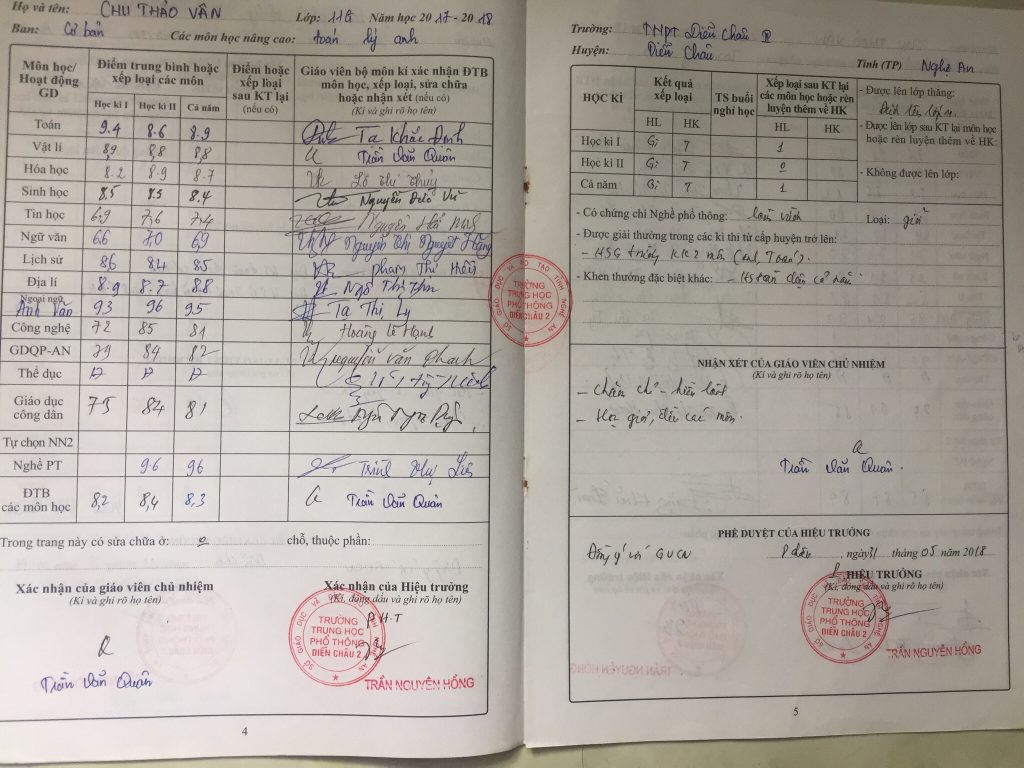 Họ và tên: CHU THẢO VÂN Lớp: 11G Năm học 2017 - 2018
Ban: Cơ bản Các môn học nâng cao: toán lý anh
Môn học/ Hoạt động GD
Điểm trung bình hoặc xếp loại các môn
Học kì I Học kì II Cả năm
Điểm hoặc xếp loại sau KT lại (nếu có)
Giáo viên bộ môn kí xác nhận ĐTB môn học, xếp loại, sửa chữa hoặc nhận xét (nếu có)
(Kí và ghi rõ họ tên)
Toán 9.4 8.6 8.9 Ta Khắc Định
Vật lí 8,9 8,8 8,8 Trần Văn Quân
Hóa học 8.2 8.9 8.7
Sinh học 8.5 8.3 8.4 Nguyễn
Tin học 6,9 7,6 7,4 Nguyễn
Ngữ văn 6,6 7,0 6,9 Nguyễn Thị Nguyệt Hằng
Lịch sử 86 8,4 85 Phạm Thị Hiền
Địa lí 8.9 8.7 8.8 Ngô Thị
Ngoại ngữ
Anh Văn 93 96 95 Tạ Thị Ly
Công nghệ 72 85 81 Hoàng Lê Hạnh
GDQP-AN 79 84 82 nguyễn văn
Thể dục
Giáo dục công dân 75 84 81
Tự chọn NN2
Nghề PT 9.6 96 Trịnh
ĐTB các môn học 8,2 8,4 8,3 Trần Văn Quân
Trong trang này có sửa chữa ở: 0 chỗ, thuộc phần:
Xác nhận của giáo viên chủ nhiệm
(Kí và ghi rõ họ tên)
Trần Văn Quân
Xác nhận của Hiệu trưởng
(Kí, đóng dấu và ghi rõ họ tên)
P.H.T
SỞ GIÁO DỤC VÀ ĐÀO TẠO TỈNH NGHỆ AN
TRƯỜNG
TRUNG HỌC
PHỔ THÔNG
DIỄN CHÂU 2
TRẦN NGUYÊN HỒNG
4
Trường: THPT Diễn Châu II
Huyện: Diễn Châu Tỉnh (TP) Nghệ An
HỌC KÌ
Kết quả xếp loại
HL HK
TS buổi nghỉ học
Xếp loại sau KT lại các môn học hoặc rèn luyện thêm về HK
HL HK
Học kì I Gi T 1
Học kì II Gi T 0
Cả năm Gi T 1
- Được lên lớp thẳng:
- Được lên lớp sau KT lại môn học hoặc rèn luyện thêm về HK:
- Không được lên lớp:
- Có chứng chỉ Nghề phổ thông: làm vườn Loại: giỏi
- Được giải thưởng trong các kì thi từ cấp huyện trở lên:
- HSG trường KK 2 môn
- Khen thưởng đặc biệt khác:
SỞ GIÁO DỤC VÀ ĐÀO TẠO TỈNH NGHỆ AN
TRƯỜNG
TRUNG HỌC
PHỔ THÔNG
DIỄN CHÂU 2
NHẬN XÉT CỦA GIÁO VIÊN CHỦ NHIỆM
(Kí và ghi rõ họ tên)
- Chăm chỉ - hiền lành
- Học giỏi, đều các môn.
Trần Văn Quân.
PHÊ DUYỆT CỦA HIỆU TRƯỞNG
Đồng ý với GVCN
ngày 31 tháng 05 năm 2018
HIỆU TRƯỞNG
(Kí, đóng dấu và ghi rõ họ tên)
SỞ GIÁO DỤC VÀ ĐÀO TẠO TỈNH NGHỆ AN
TRƯỜNG
TRUNG HỌC
PHỔ THÔNG
DIỄN CHÂU 2
TRẦN NGUYÊN HỒNG
5